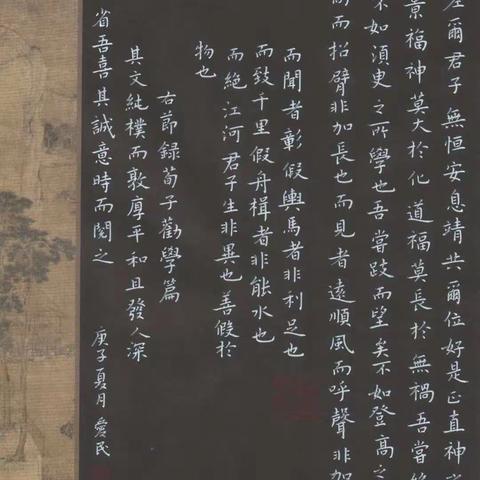 爾君子無恒安息靖共爾位好是正直神
景福神莫大於化道福莫長於無禍吾嘗終
不如須臾之所學也吾嘗跂而望矣不如登高之
而招臂非加長也而見者遠順風而呼聲非加
而聞者彰假輿馬者非利足也
而致千里假舟楫者非能水也
而絕江河君子生非異也善假於
物也
右節錄荀子勸學篇
其文純樸而敦厚平和且發人深
省吾喜其誠意時而閱之 庚子夏月 愛民